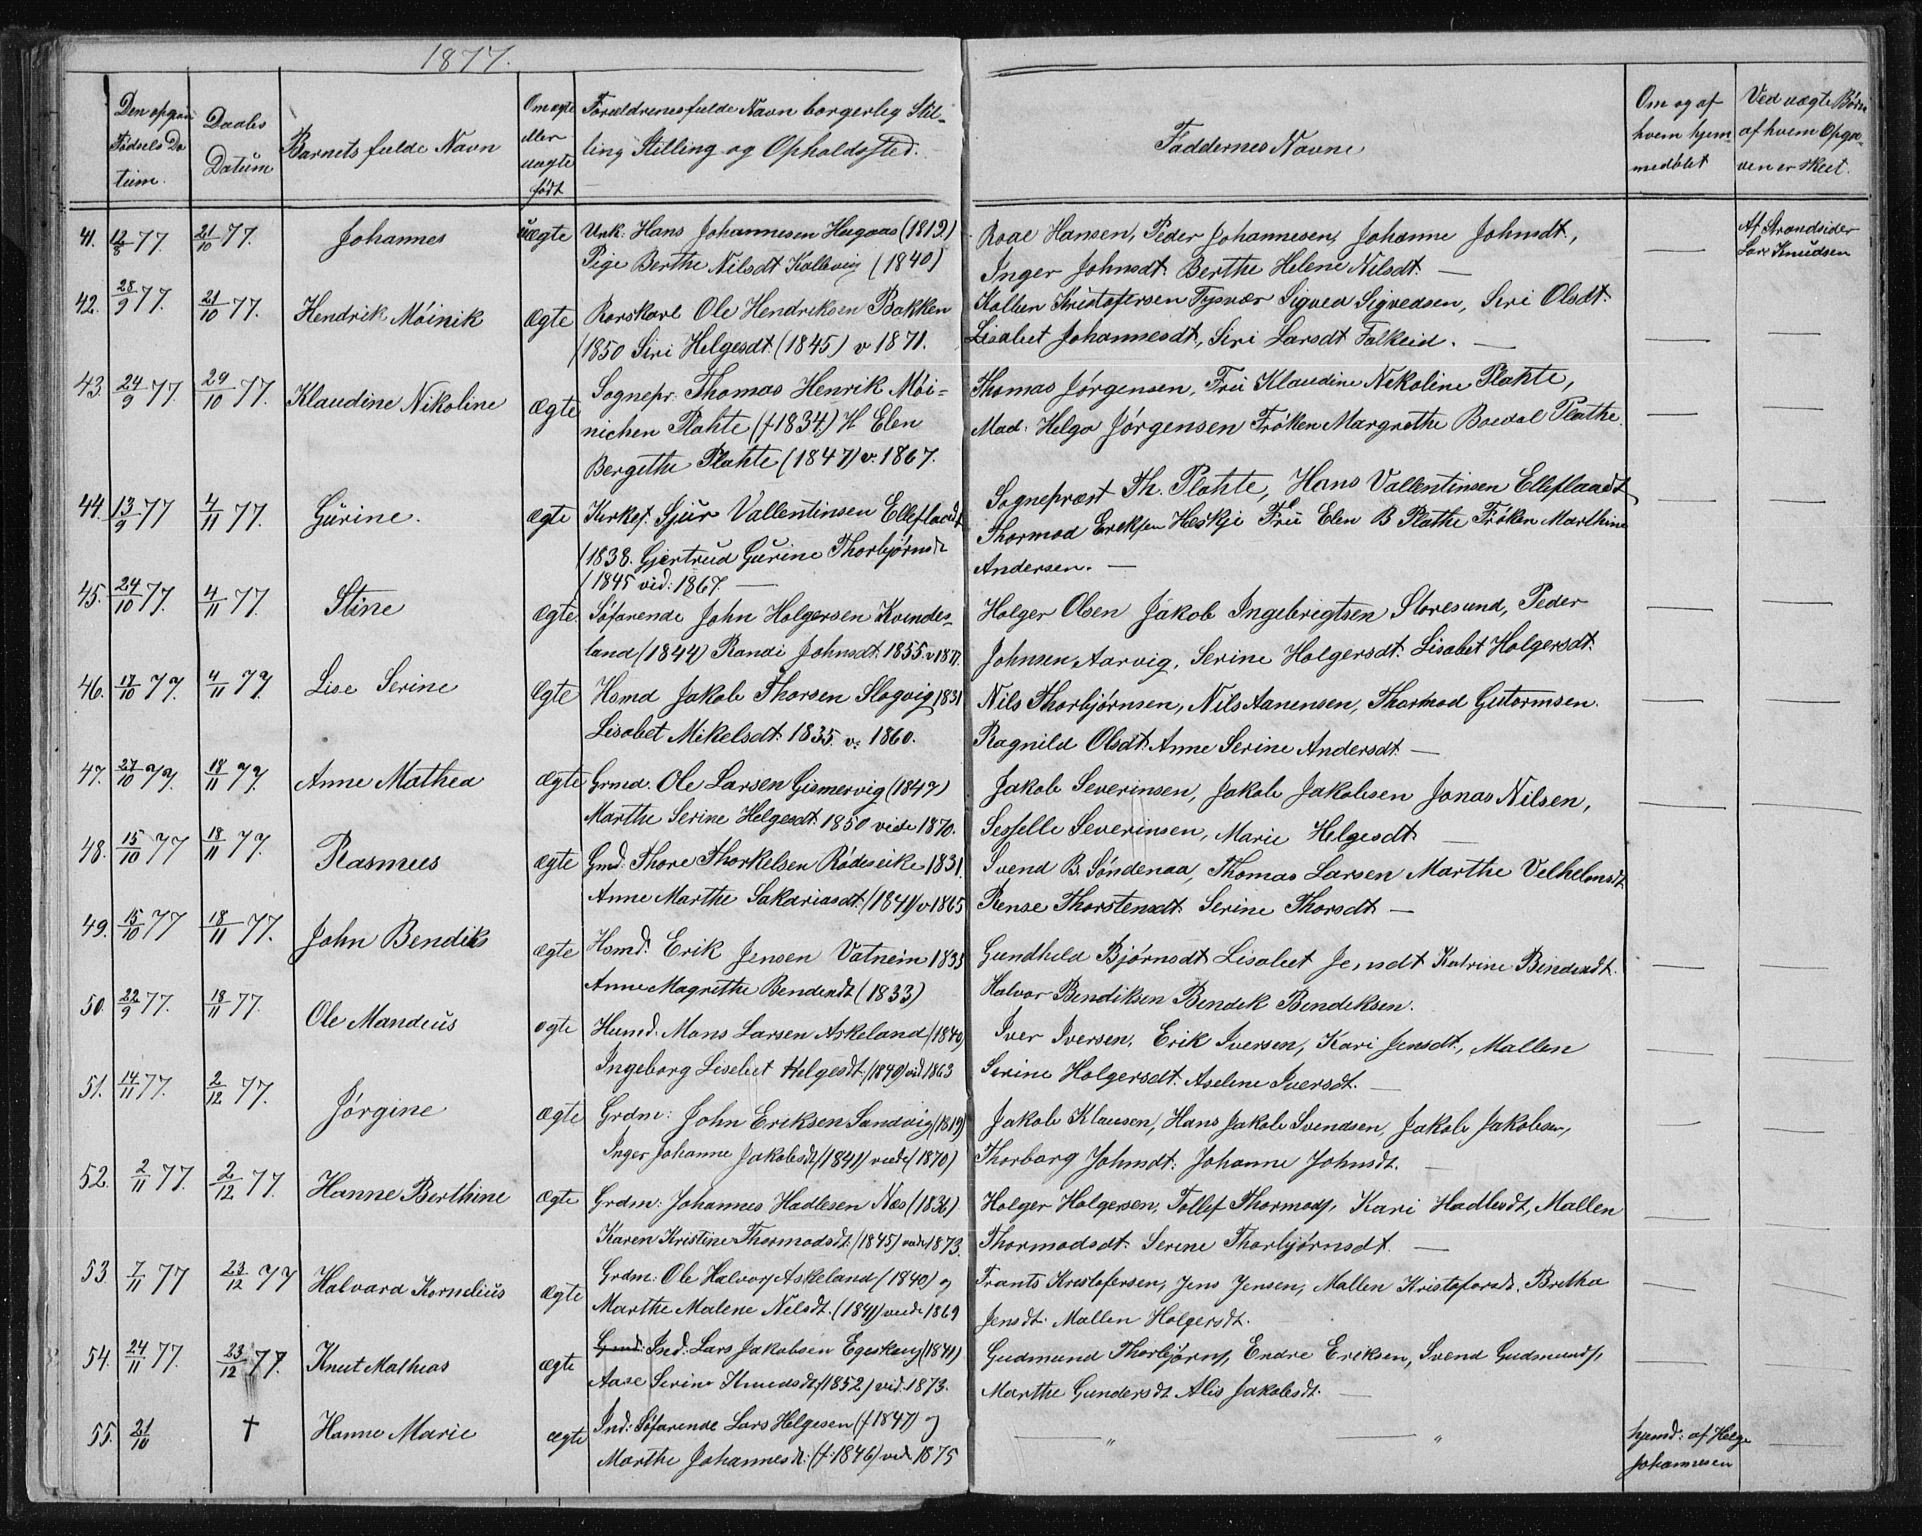 1877.
Den opgivne Fødsels Datum.
Daabs Datum
Barnets fulde Navn
Om ægte eller uægte født
Forældrenes fulde Navn borgerlig Stilling Stilling og Opholdssted.
Faddernes Navne
Om og af hvem hjemmedøbt
Ved uægte Børn af hvem Opgaven er skeet.
41. 12/8 77 21/10 77. Johannes uægte Unk: Hans Johannesen Hagaas (1819) Roae Hansen, Peder Johannesen, Johanne Johnsdt, — Af Strandsider
Pige Berthe Nilsdt Kallevig (1840) Inger Johnsdt. Berthe Helene Nilsdt. — Lars Knudsen
42. 28/9 77. 21/10 77. Hendrik Möinik Ægte Rorskarl Ole Hendriksen Bakken Kristofersen Tysvær Sigved Sigvedsen, Siri Olsdt.
(1850 Siri Helgesdt. (1845) v 1871. Lisabet Johannesdt, Siri Larsdt Falkeid. — — —
43. 24/9 77 29/10 77. Klaudine Nikoline Ægte Sognepr: Thomas Henrik Möi- Thomas Jørgensen, Fru Klaudine Nikoline Plahte, — —
nichen Plahte (f 1834) H Elen Mad: Helga Jørgensen Frøken Margrethe Boedal Plathe.
Bergethe Plahte (1847) v. 1867.
44. 13/9 77 4/11 77. Gurine. Ægte Kirkes. Sjur Vallentinsen Elleflaadt Sognepræst Th. Plahte, Hans Vallentinsen Elleflaadt — —
(1838. Gjertrud Gurine Thorbjørnsdt Thormod Eriksen Heskje Fru Elen B Plathe Frøken Marthine
(1845 vid: 1867. — Andersen. —
45. 24/10 77. 4/11 77. Stine Ægte Søfarende John Holgersen Kvindes- Holger Olsen Jakob Ingebrigtsen Storesund, Peder — —
land (1844) Randi Johnsdt. 1855. v 1877. Johnsen Aarvig, Serine Holgersdt. Lisabet Holgersdt.
46. 17/10 77. 4/11 77. Lise Serine Ægte Hsmd Jakob Thorsen Slogvig 1831 Nils Thorbjørnsen, Nils Aanensen, Thormod Gutormsen. — —
Lisabet Mikelsdt. 1835. v. 1860. Ragnild Olsdt. Anne Serine Andersdt —
47. 27/10 77. 18/11 77. Anne Mathea Ægte Grmd. Ole Larsen Gismervig (1847) Jakob Severinsen, Jakob Jakobsen Jonas Nilsen, — —
Marthe Serine Helgesdt. 1850 vide 1870. Sesselle Severinsen, Marie Helgesdt. —
48. 15/10 77 18/11 77. Rasmus Ægte Gmd: Thore Thorkelsen Rødseike 1831. Svend B. Søndenaa, Thomas Larsen Marthe Velhelmsdt — —
Anne Marthe Sakariasdt (1841) v 1865 Rense Thorstensdt. Serine Thorsdt. —
49. 15/10 77 18/11 77. John Bendiks Ægte Hsmd. Erik Jensen Vatneim 1835 Gundheld Bjørnsdt Lisabet Jensdt Katrine Bendexdt. — —
Anne Magrethe Bendexdt (1833) Halvor Bendiksen Bendik Bendiksen.
50. 22/9 77. 18/11 77. Ole Mandius Ægte Husmd. Mons Larsen Askeland (1840) Iver Iversen, Erik Iversen, Kari Jensdt., Mallen — —
Ingeborg Lisebet Helgesdt. (1840) vid 1863 Serine Holgersdt. Aselene Iversdt. —
51. 14/11 77. 2/12 77. Jørgine Ægte Grdm: John Eriksen Sandvig (1819) Jakob Klausen, Hans Jakob Svendsen, Jakob Jakobsen, — —
Inger Johanne Jakobsdt (1841) viede (1870) Thorborg Johnsdt: Johanne Johnsdt. —
52. 2/11 77. 2/12 77. Hanne Berthine Ægte Grdm: Johannes Hadlesen Næs (1836) Holger Holgersen, Tollef Thormods, Kari Hadlesdt, Mallen — —
Karen Kristine Thormodsdt. (1845) vide 1873. Thormodsdt. Serine Thorbjørnsdt. —
53. 7/11 77 23/12 77 Halvard Kornelius Ægte Grdm: Ole Halvors Askeland (1840) og Frants Kristofersen, Jens Jensen, Mallen Kristofersdt. Bretha — —
Marthe Malene Nelsdt. (1841) viede 1869 Jensdt. Mallen Holgersdt.
54. 24/11 77. 23/12 77. Knut Mathias Ægte Gmd: Ind: Lars Jakobsen Egeskaug (1841) Gudmund Thorbjørns, Endre Eriksen, Svend Gudmunds, — —
Aase Serine Knudsdt (1852) vid. 1873. Marthe Gundersdt Alis Jakobsdt. —
55. 21/10 † Hanne Marie ægte Ind: Søfarende Lars Helgesen (f 1847) og — " — " hjemd: af Helge —
Marthe Johannesdt: (f. 1846) vid 1875 Johannesen